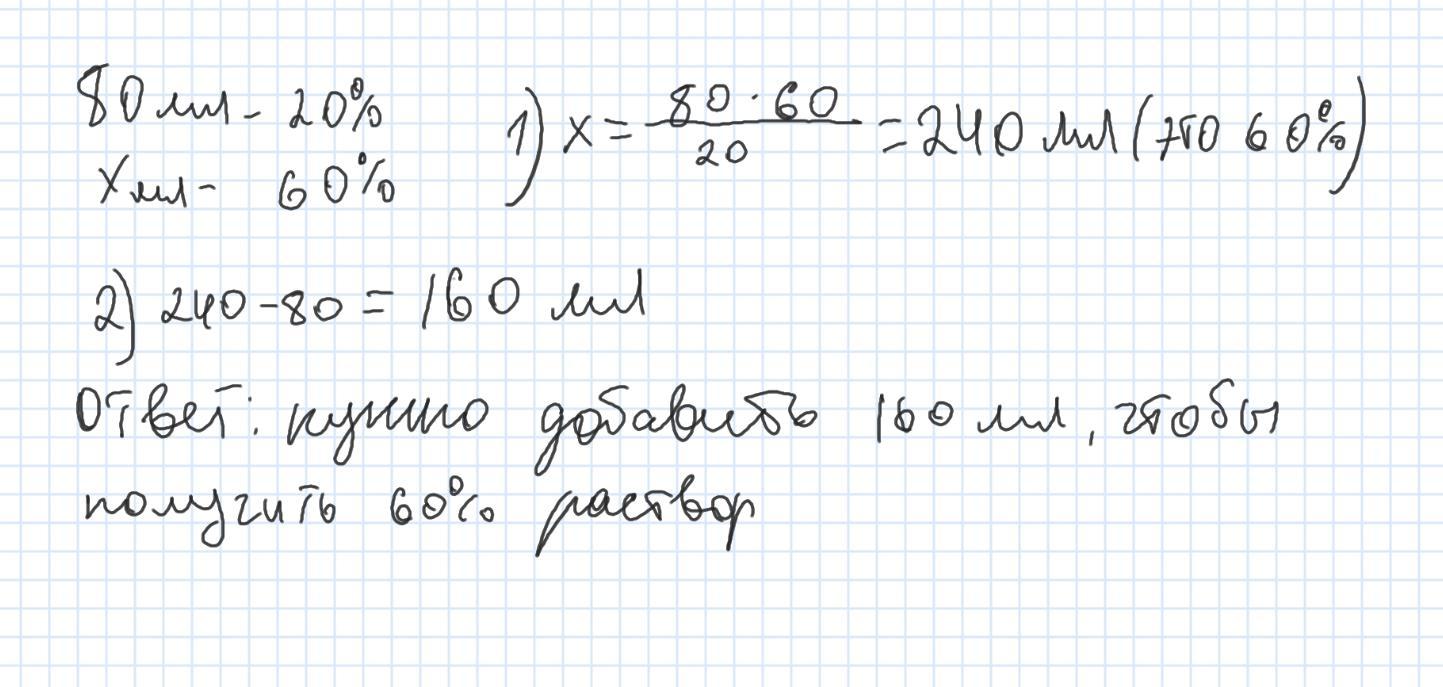 80 мл - 20%
x мл - 60%
1) x = 80 · 60 / 20 = 240 мл (это 60%)
2) 240 - 80 = 160 мл
Ответ: нужно добавить 160 мл, чтобы
получить 60% раствор